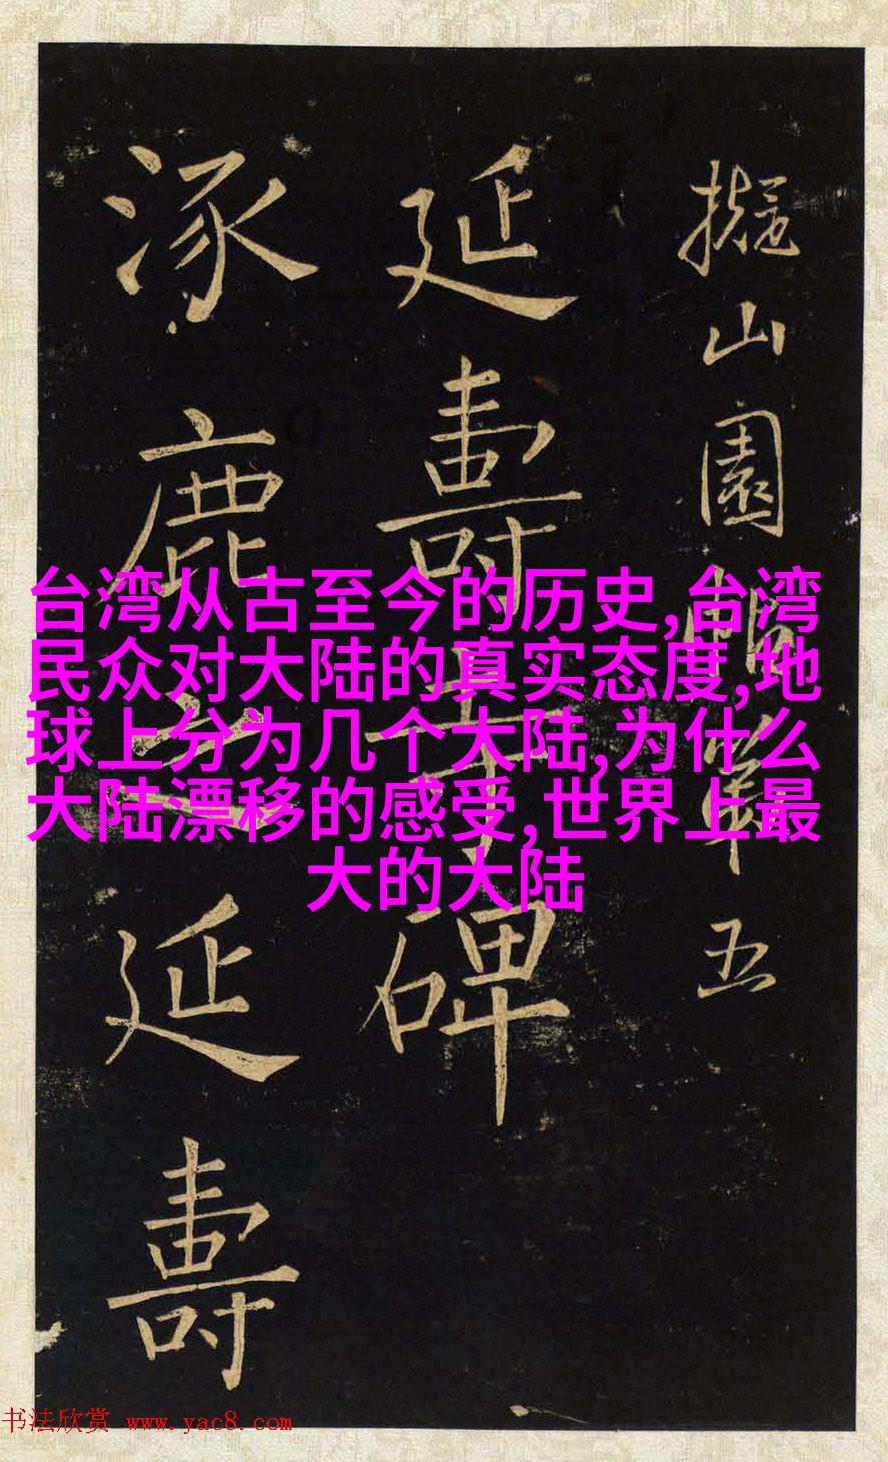 擬山園帖第五
延壽寺碑
涿鹿之延壽
台湾从古至今的历史,台湾
民众对大陆的真实态度,地
球上分为几个大陆,为什么
大陆漂移的感受,世界上最
大的大陆
书法欣赏 www.yac8.com